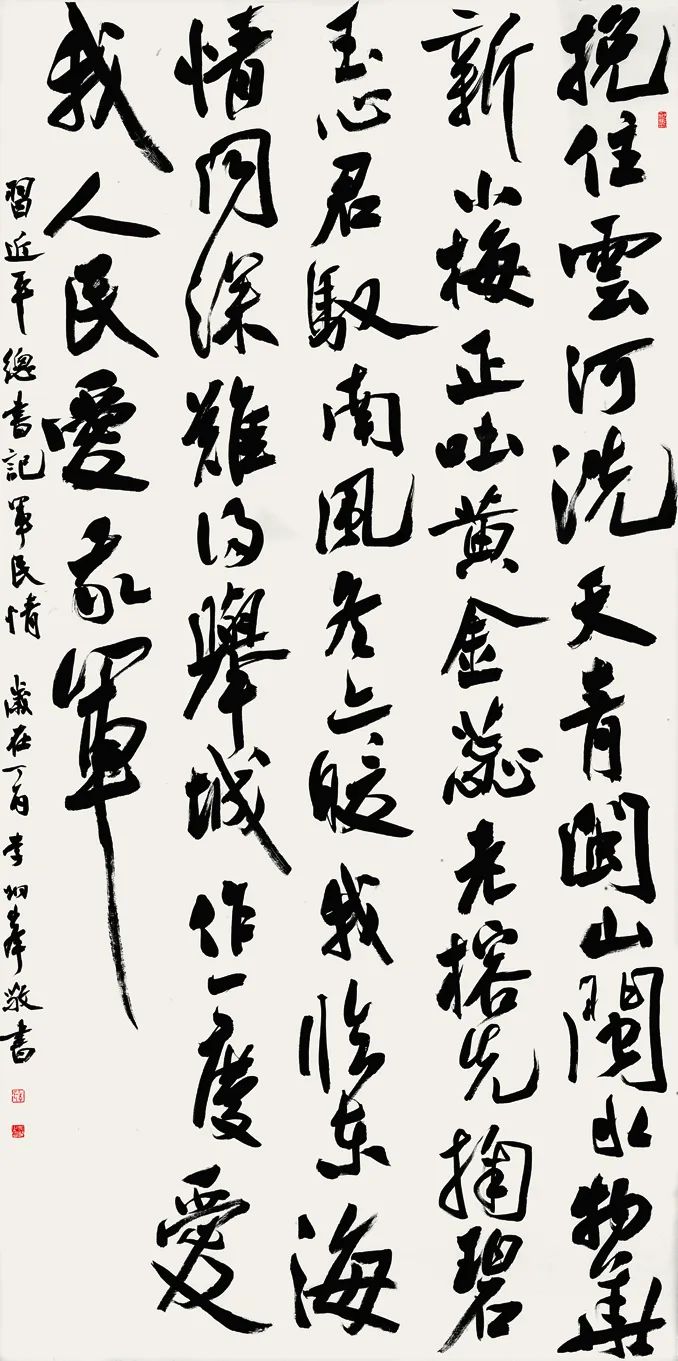 挽住雲河洗天青閩山閩水物華
新小梅正吐黄金蕊老榕先掬碧
玉心君馭南風冬亦暖我临东海
情同深難得舉城作一慶愛
我人民愛我軍
習近平總書記軍民情 歲在丁酉 李峰敬書